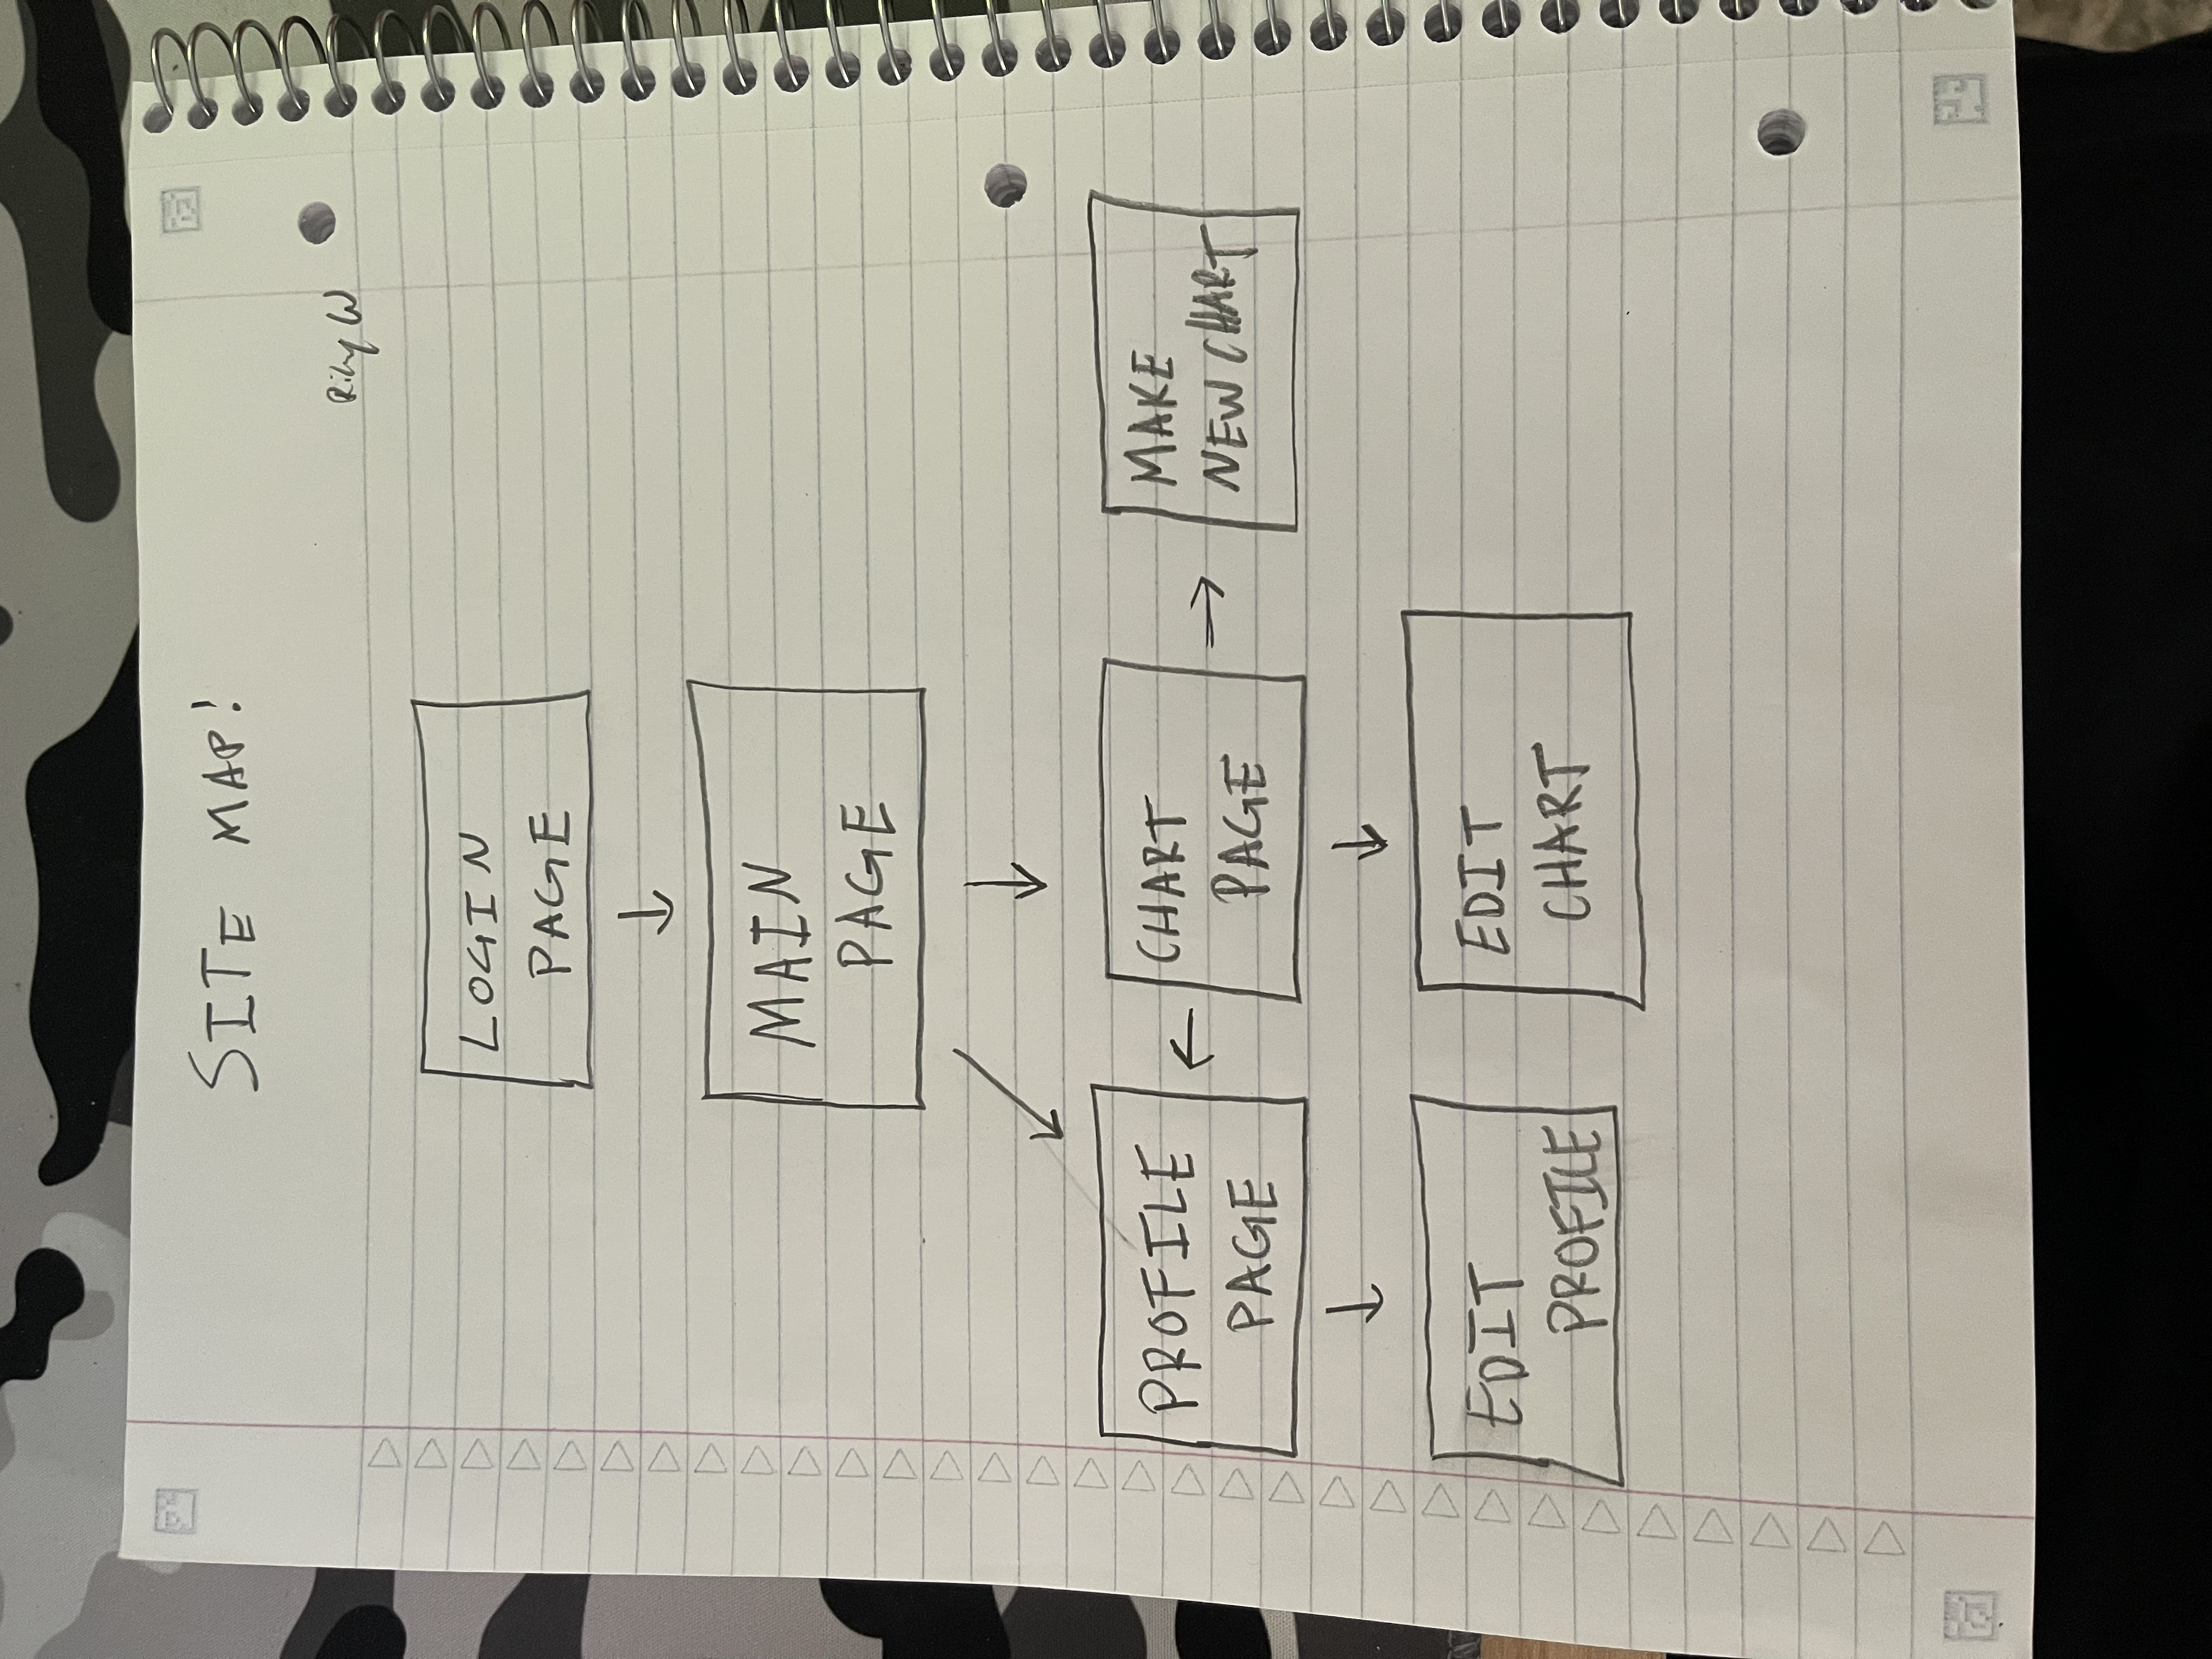 SITE MAP!
Riley W
LOGIN
PAGE
MAIN
PAGE
PROFILE
PAGE
CHART
PAGE
MAKE
NEW CHART
EDIT
PROFILE
EDIT
CHART